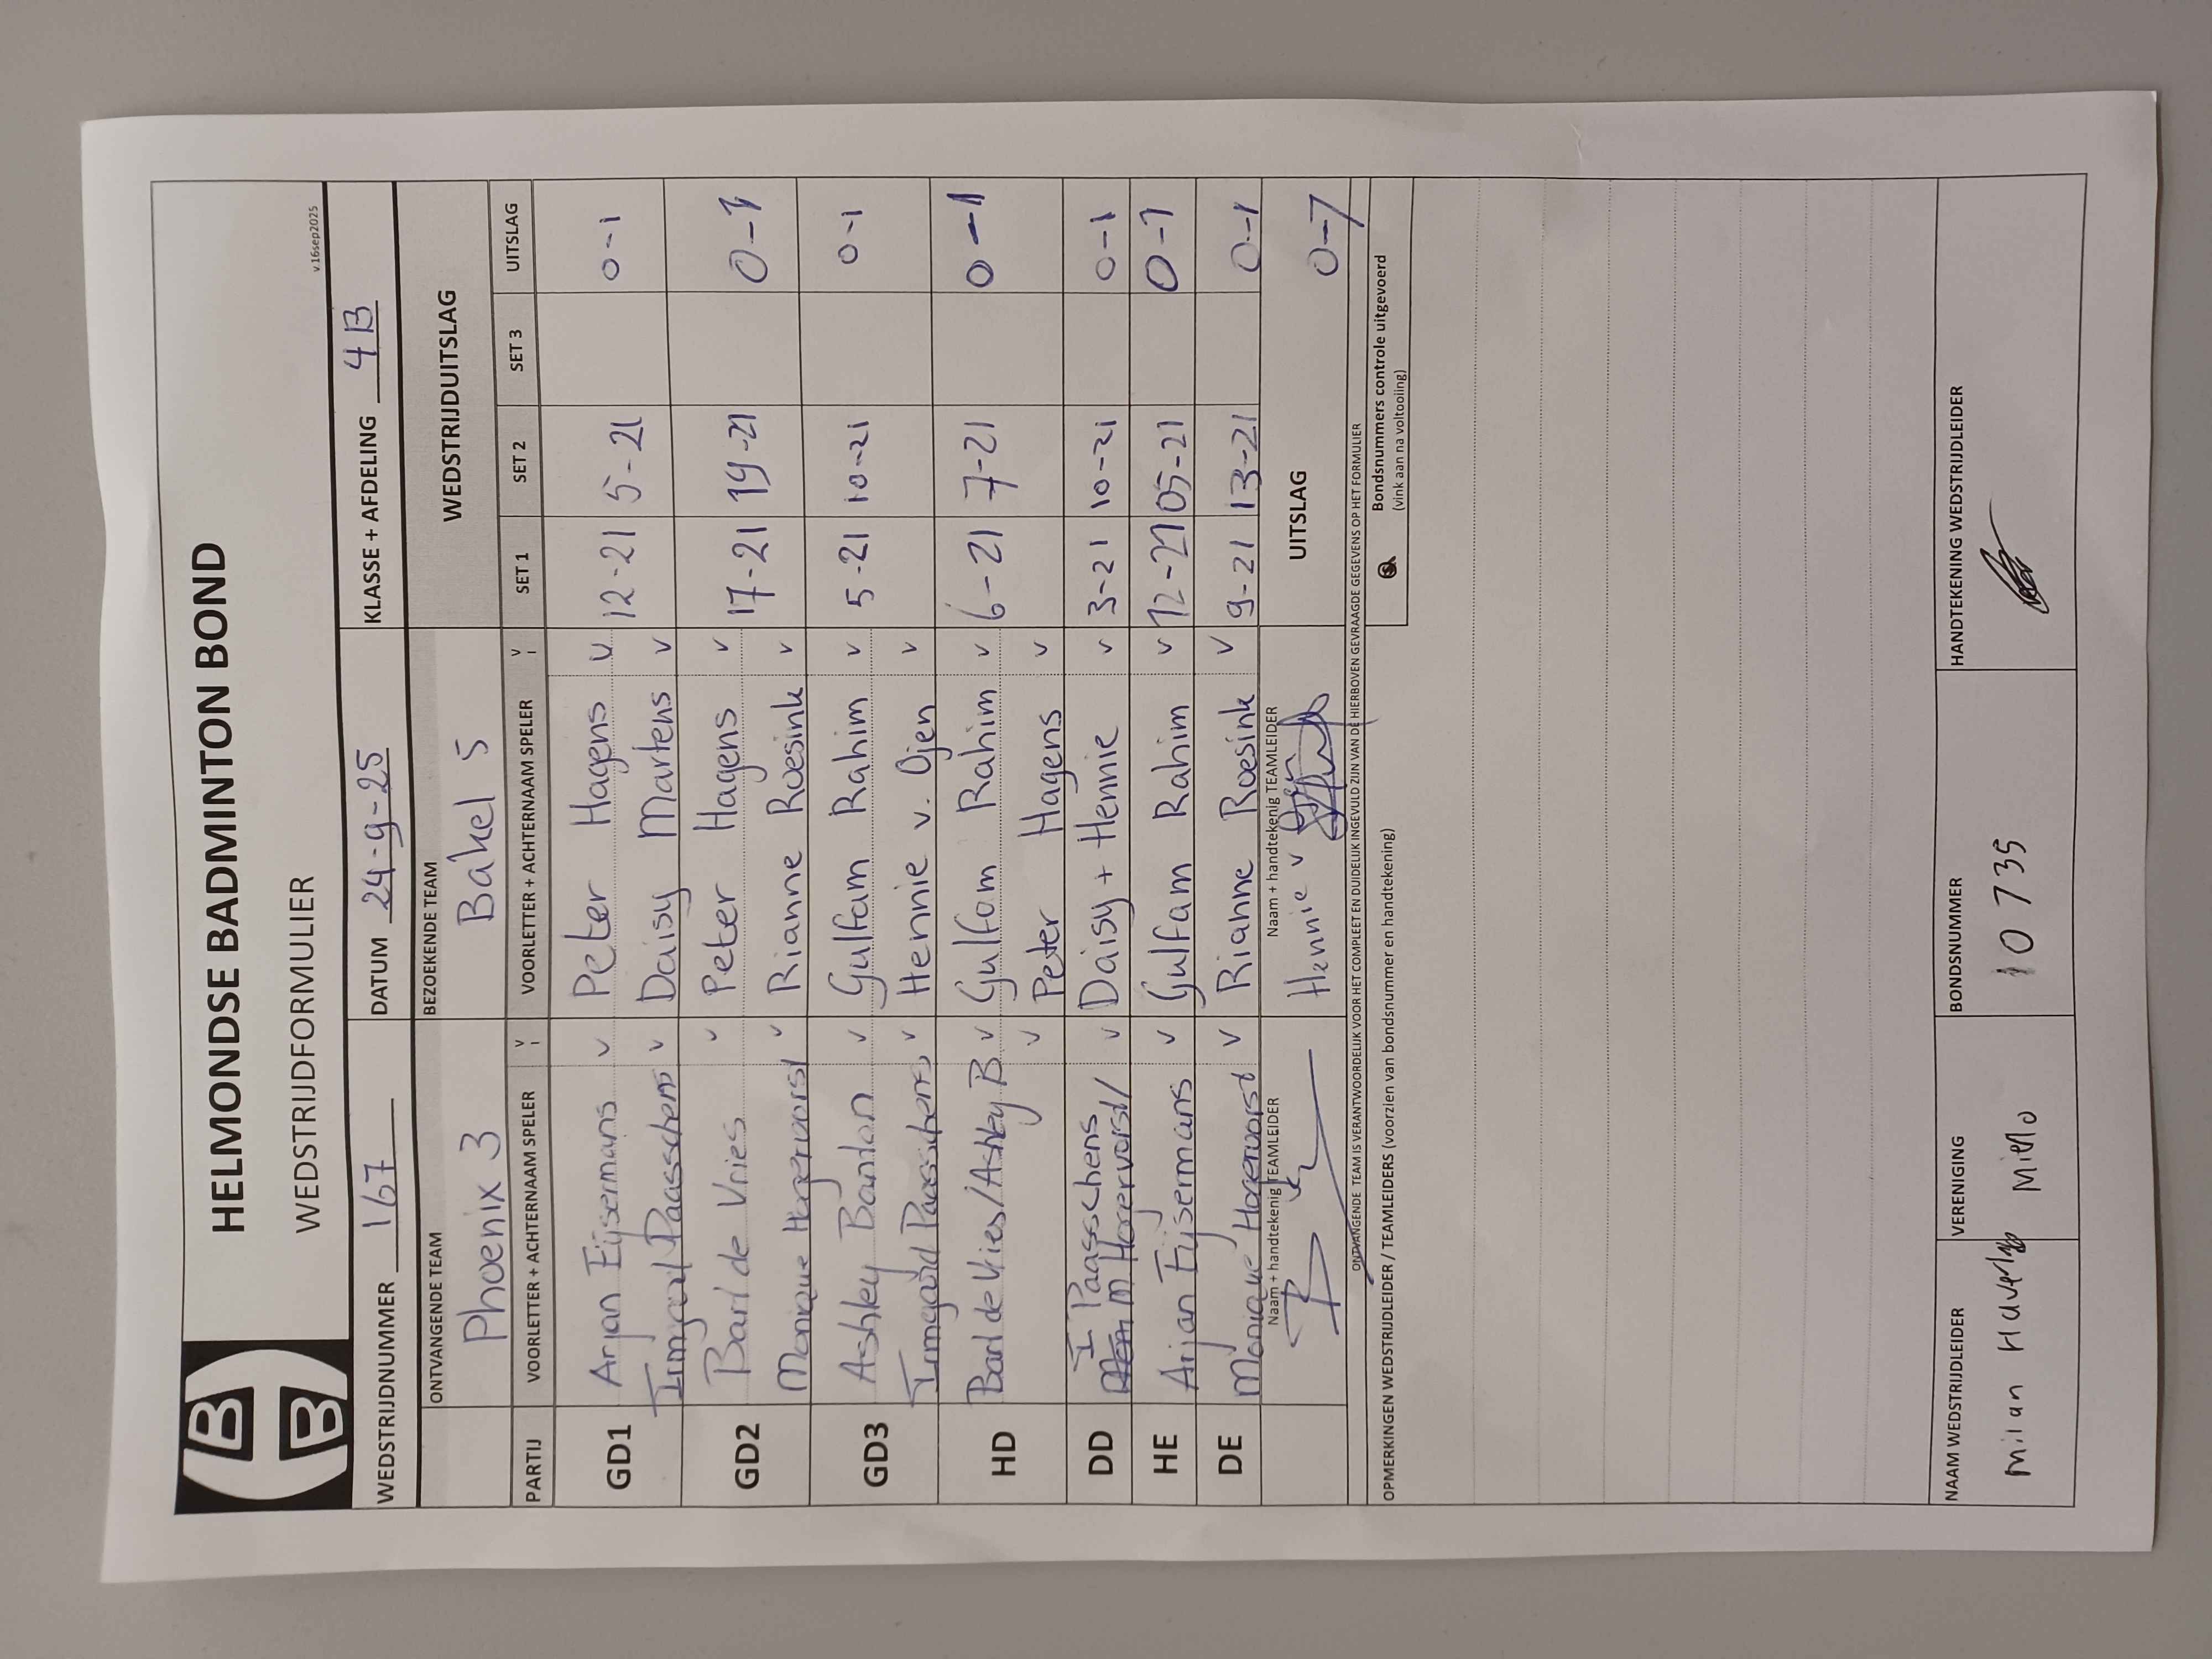 HELMONDSE BADMINTON BOND
WEDSTRIJDFORMULIER
v.16sep2025
WEDSTRIJDNUMMER 167 DATUM 24-9-25 KLASSE + AFDELING 4B
ONTVANGENDE TEAM BEZOEKENDE TEAM WEDSTRIJDUITSLAG
Phoenix 3 Bakel 5
PARTIJ VOORLETTER + ACHTERNAAM SPELER V VOORLETTER + ACHTERNAAM SPELER V SET 1 SET 2 SET 3 UITSLAG
GD1 Arjan Eijsermans v Peter Hagens v 12-21 5-21 0-1
Irmgard Paasschens v Daisy Martens v
GD2 Bart de Vries v Peter Hagens v 17-21 19-21 0-1
Monique Hogervorst v Rianne Roesink v
GD3 Ashley Banton v Gulfam Rahim v 5-21 10-21 0-1
Irmgard Paasschens v Hennie v. Ojen v
HD Bart de Vries/Ashley B v Gulfam Rahim v 6-21 7-21 0-1
v Peter Hagens v
DD I Paasschens v Daisy + Hennie v 3-21 10-21 0-1
M Hogervorst
HE Arjan Eijsermans v Gulfam Rahim v 12-21 05-21 0-1
DE Monique Hogervorst v Rianne Roesink v 9-21 13-21 0-1
Naam + handtekenig TEAMLEIDER Naam + handtekenig TEAMLEIDER UITSLAG 0-7
Hennie v
ONTVANGENDE TEAM IS VERANTWOORDELIJK VOOR HET COMPLEET EN DUIDELIJK INGEVULD ZIJN VAN DE HIERBOVEN GEVRAAGDE GEGEVENS OP HET FORMULIER
OPMERKINGEN WEDSTRIJDLEIDER / TEAMLEIDERS (voorzien van bondsnummer en handtekening)
Bondsnummers controle uitgevoerd
(vink aan na voltooiing)
NAAM WEDSTRIJDLEIDER VERENIGING BONDSNUMMER HANDTEKENING WEDSTRIJDLEIDER
Milan Mierlo 10735